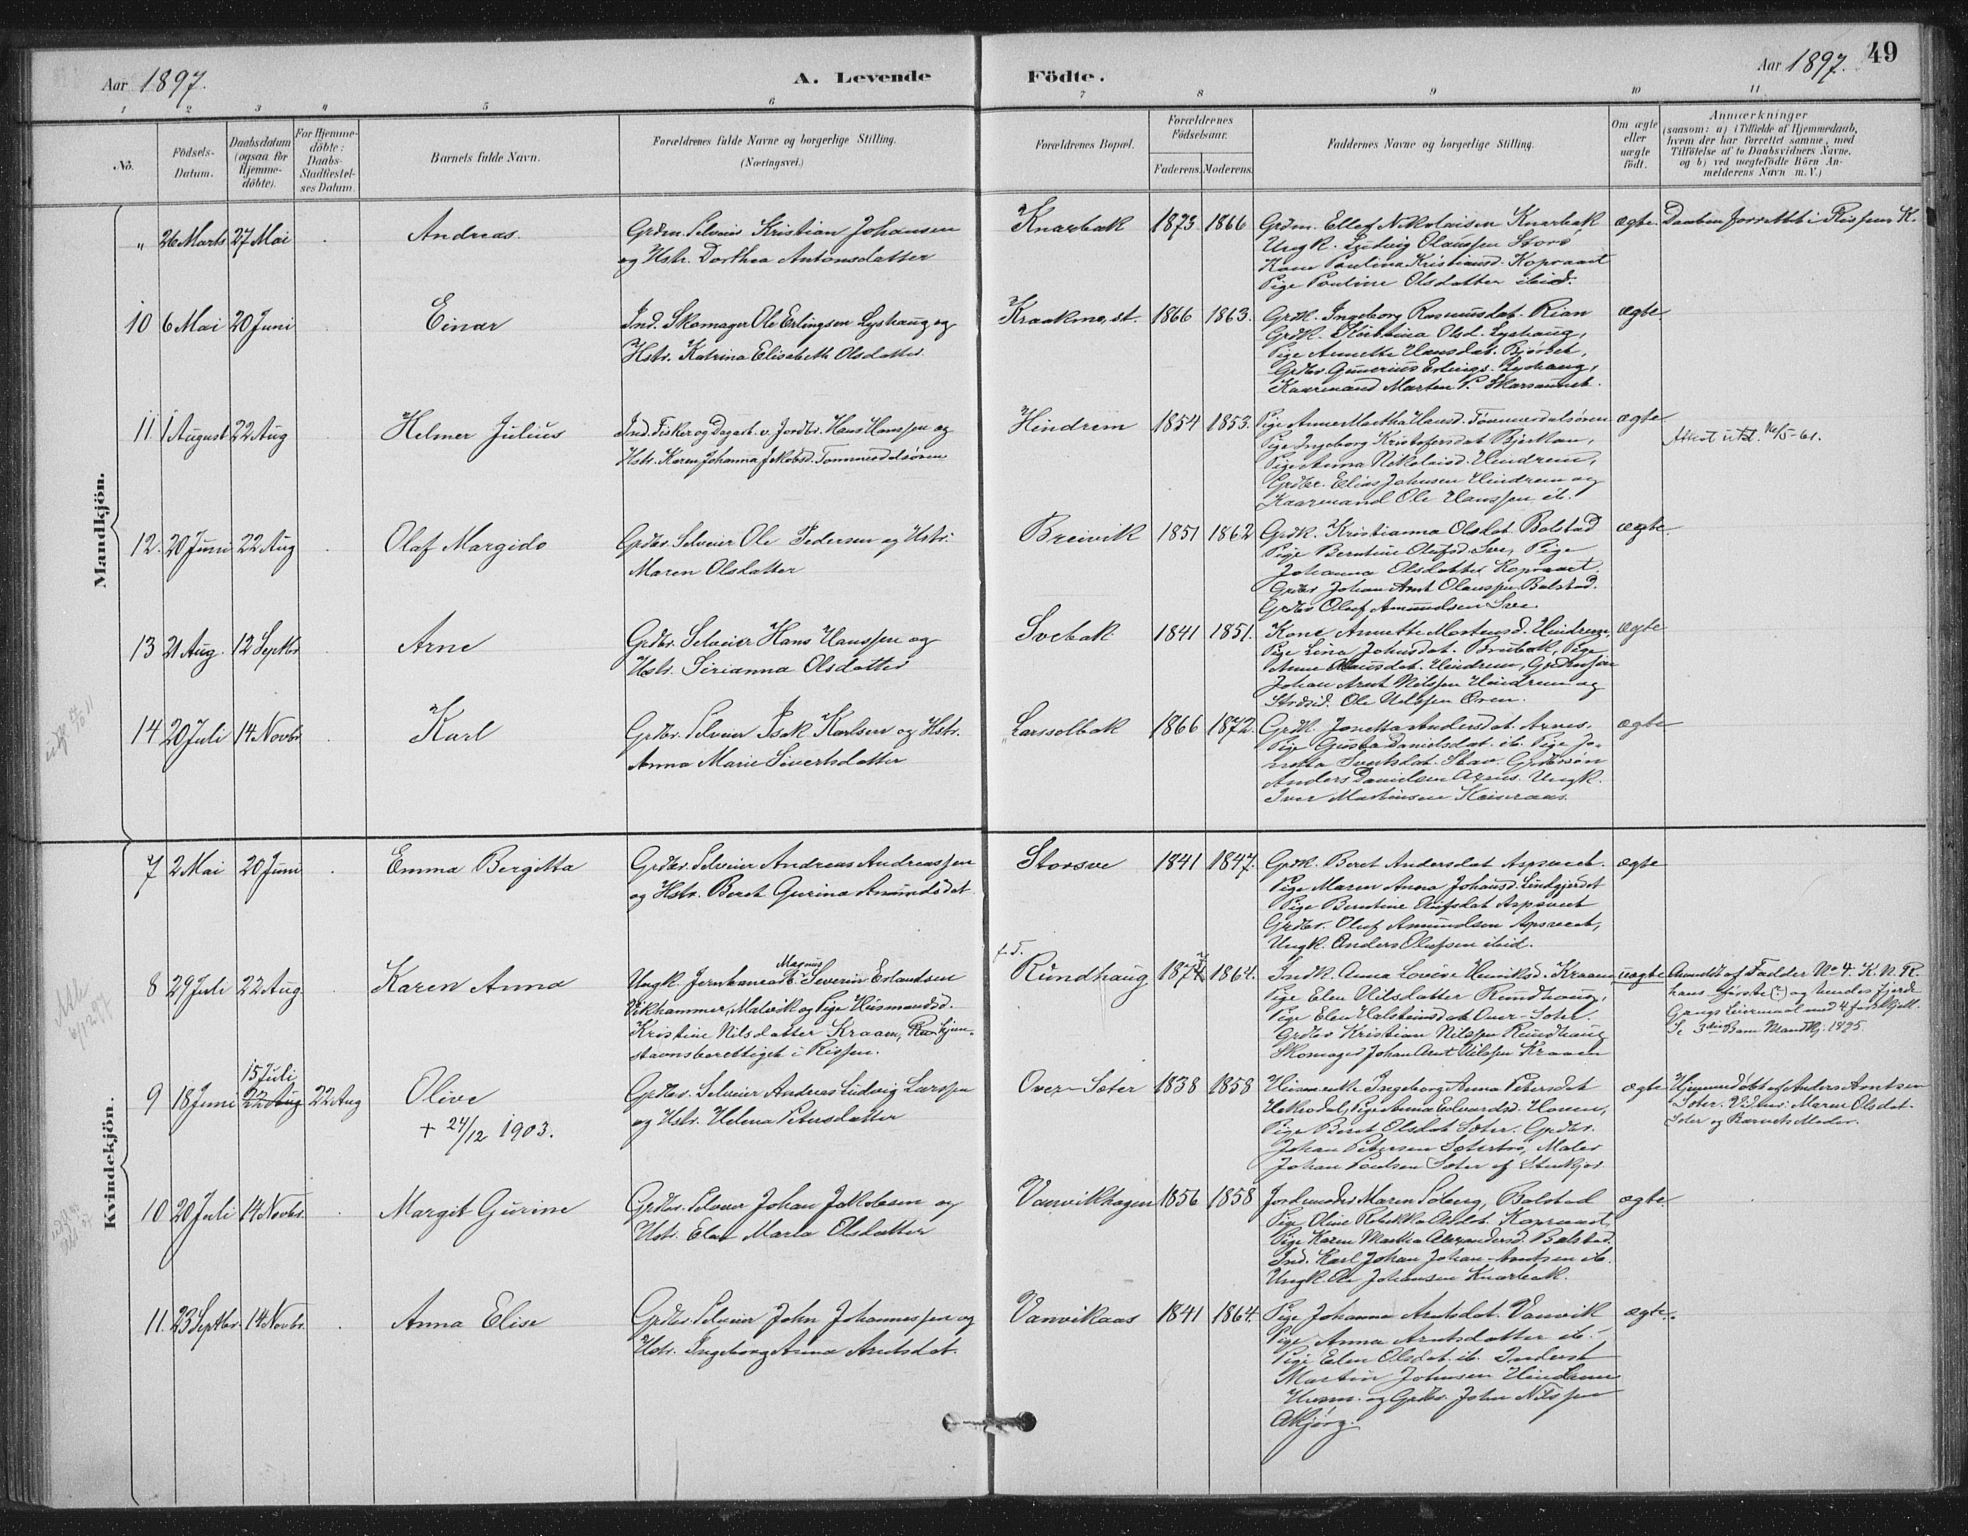 Aar 1897.
A. Levende
Födte.
Aar 1897.
49
1 2 3 4 5 6 7 8 9 10 11
No.
Födsels-
Datum.
Daabsdatum
(ogsaa for
Hjemme-
döbte).
For Hjemme-
döbte:
Daabs-
Stadfæstel-
ses Datum.
Barnets fulde Navn.
Forældrenes fulde Navne og borgerlige Stilling.
(Næringsvei.)
Forældrenes Bopæl.
Forældrenes
Födselsaar.
Faderens. Moderens.
Faddernes Navne og borgerlige Stilling.
Om ægte
eller
uægte
födt.
Anmærkninger
(saasom: a) i Tilfælde af Hjemmedaab,
hvem der har forrettet samme, med
Tilföielse af to Daabsvidners Navne,
og b) ved uægtefödte Börn An-
melderens Navn m. V.)
Mandkjön.
" 26 Marts 27 Mai Andreas
Grdm. Selveier Kristian Johansen
og Hstr. Dorthea Antonsdatter
Knarbak 1873 1866
Grdm. Ellef Nikolaisen Knarbak
Ungk. Ludvig Olaussen Storö
Kone Paulina Kristiansd. Kopraaet
Pige Pauline Olsdatter ibid.
ægte Daaben forrettet i Rissens K.
10 6 Mai 20 Juni Einar
Ind. Skomager Ole Erlingsen Lyshaug og
Hstr. Katrina Elisabeth Olsdatter
Kraakmo, st. 1866 1863.
Grdk. Ingeborg Rasmusdat. Rian
Grdk. Kristina Olsd. Lyshaug,
Pige Annette Hansdat.
Grdbr. Gunerius Erlings. Lyshaug,
Kaarmand Morten P.
ægte
11 1 August 22 Aug Helmer Julius
Ind. Fisker og Dagarb. v. Jordbr. Hans Hanssen og
Hstr. Karen Johanna Jakobsd. Tømmerdalsøren
Hindrem 1854 1853.
Pige Anne Martha Hansd. Tømmerdalsøren
Pige Ingeborg Kristofersdat.
Pige Anna Nikolaisd. Hindrem,
Grdbr. Elias Johnsen Hindrem og
Kaarmand Ole Hanssen ib.
ægte
Attest utst. 16/5-61.
12. 20 Juni 22 Aug Olaf Margido
Grdbr. Selveier Ole Pedersen og Hstr.
Maren Olsdatter
Breivik 1851 1862
Grdk. Kristianna Olsdat. Bolstad
Pige Berntine Olufsd. Sve, Pige
Johanna Olsdatter Kopraaet.
Grdbr Johan Arnt Olaussen Bolstad.
Grdbr Oluf Amundsen Sve.
ægte
13 21 Aug. 12 Septbr Arne
Grdbr. Selveier Hans Hanssen og
Hstr. Sirianna Olsdatter
Svebak 1841 1851.
Kone Annette Mortensd. Hindrem,
Pige Lina Johnsdat. Brubak, Pige
Anne Hansdat. Hindrem,
Johan Arnt Nilssen Hindrem og
Ole Nilssen Øren.
ægte
14 20 Juli 14 Novbr Karl
Grdbr. Selveier Isak Karlsen og Hstr.
Anna Marie Sivertsdatter
Larssolbak 1866 1872.
Grdk. Jonetta Andersdat. Arnes.
Pige Gusta Danielsdat. ib. Pige Jo-
netta Sivertsdat. Stav. Grdbrsøn
Anders Danielsen Arnes. Ungk.
Iver Martinsen
ægte
Kvindekjön.
7 2 Mai 20 Juni Emma Bergitta
Grdbr. Selveier Andreas Andreassen
og Hstr. Beret Gurina Amundsdat.
Storsve 1841 1847.
Grdk. Beret Andersdat Aspsveet.
Pige Maren Anna Johansd. Lindgjerdet
Pige Berntine Olufsdat Aspsveet
Grdbr. Oluf Amundsen Aspsveet,
Ungk. Anders Olufsen ibid.
ægte
8 29 Juli 22 Aug. Karen Anna
Ungk. Jernbanearb. Magnus Severin Erlandsen
Vikhammer, Malvik og Pige Husmandsd.
Kristine Nilsdatter Kraam, Rissen hjem-
stavnsberettiget i Rissen.
f. S.
Rundhaug 187 1864.
Indk. Anna Lovise Henriksd. Kraam
Pige Elen Nilsdatter Rundhaug,
Pige Elen Halsteinsdat Over-Sæter.
Grdbr Kristian Nilssen Rundhaug
Skomager Johan Arnt Nilssen Kraam
uægte
Anmeldt af Fadder No 4. K. N. R.
hans første (?) og hendes fjerde
Gangs Leiermaal med 4 forskjell.
Se 3die Barn Mandkj. 1895.
9 18 Juni 15 Juli 22 Aug 22 Aug Olive
+ 24/12 1903.
Grdbr. Selveier Andreas Ludvig Larssen
og Hstr. Helena Petersdatter
Over-Sæter 1838 1858
Ingeborg Anna Petersdat
Pige Anna Edvardsd. Hoven,
Pige Beret Olsdat Sæter. Grdbr.
Johan Petersen Sætertrø, Maler
Johan Paulsen Sæter af Stenkjær
ægte
Hjemmedøbt af Anders Arntsen
Sæter. Vidner: Maren Olsdat.
Sæter og Barnets Moder.
10 20 Juli 14 Novbr. Margit Gurine
Grdbr. Selveier Johan Jakobsen og
Hstr. Elen Marta Olsdatter
Vanvikhagen 1856 1858
Jordemoder Maren Solberg, Bolstad
Pige Oline Rebekka Olsdat. Kopraaet,
Pige Karen Martha Alexandersd. Bolstad.
Ind. Karl Johan Johan-Arntsen ib.
Ungk. Ole Johansen Knarbak.
ægte.
11. 23 Septbr. 14 Novbr Anna Elise
Grdbr. Selveier John Johannessen og
Hstr. Ingeborg Anna Arntsdat.
Vanvikaas 1841 1864.
Pige Johanna Arntsdat. Vanvik
Pige Anna Arntsdatter ib.
Pige Elen Olsdat. ib. Inderst
Martin Johnsen Hindrem
Husm. og Grdbr. John Nilssen
Askjørg.
ægte.